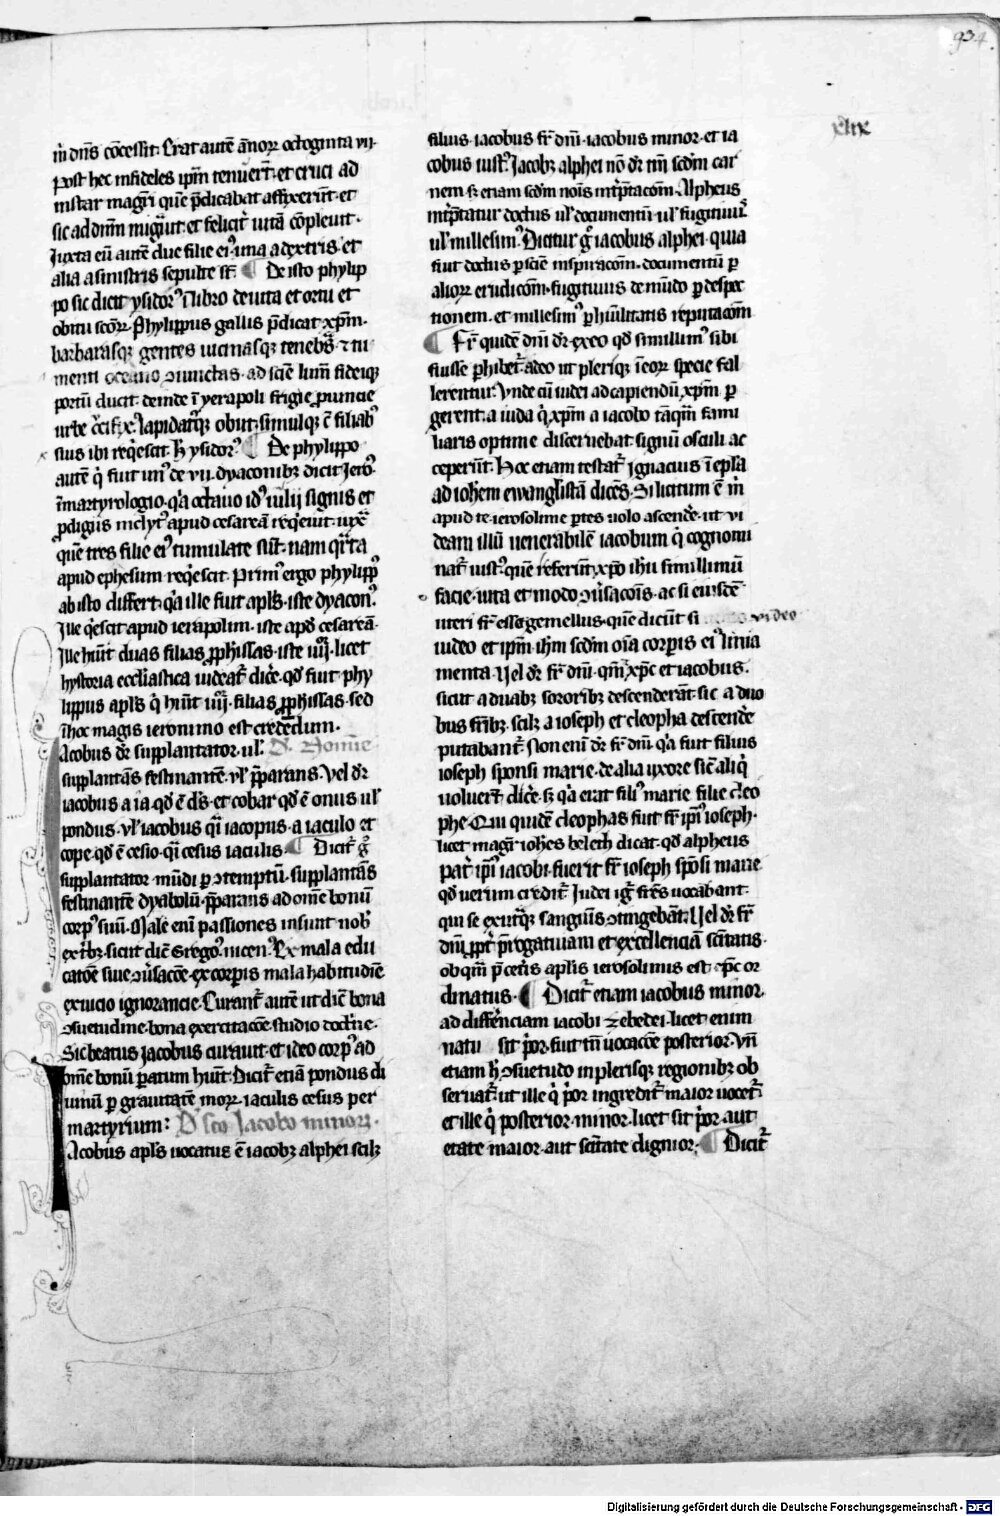 934.
xlix
m̄ dn̄s cōcessit. Erat autē ānoꝝ octoginta vij.
post hec infideles ip̄m tenuerūt. et cruci ad
instar magr̄i quē p̄dicabat affixerūt. et
sic ad dn̄m migͣuit. et feliciť uitā cōpleuit.
Juxta eū autē due filie eiꝰ. una a dextris. et
alia a sinistris sepulte st̄. ¶ De isto phylip
po sic dicit ysidorꝰ ī libro de uita et ortu et
obitu sc̄oꝝ. Phylippus gallis p̄dicat xp̄m.
barbarasqꝫ gentes uicinasqꝫ tenebͥs ⁊ tu
menti oceano ꝯiunctas. ad scīe lum̄ fideiqꝫ
portū ducit. deinde ī yerapoli frigie ꝓuincie
urbe cͥcifixꝰ lapidatꝰqꝫ obijt. simulqꝫ cū filiabꝰ
suis ibi reqͥescit. h̄ ysidorꝰ. ¶ De phylippo
autē qͥ fuit unꝰ de vij. dyaconibꝫ dicit Jero.
ī martyrologio. qͥa octauo idꝰ iulij signis et
ꝓdigijs inclytꝰ apud cesareā reqͥeuit. iuxͣ
quē tres filie eiꝰ tumulate sūt. nam qͣrta
apud ephesum reqͥescit. Primꝰ ergo phylippꝰ
ab isto differt. qͥa ille fuit apl̄s. iste dyaconꝰ.
Jlle qͥescit apud ierapolim. iste apd̄ cesareā.
Jlle hūit duas filias ꝓphissas. iste iiij. licet
hystoria eccl̄iastica uideat̄ dicͤe. qd̄ fuit phy
lippus apl̄s qͥ hūit iiij. filias ꝓphissas. sed
ī hoc magis ieronimo est credēdum.
Acobus dr̄ supplantator. ul̓. D̄ Nomīe
supplantās festinantē. ul̓ p̄parans. Vel dr̄
iacobus a ia. qd̄ ē dꝰs. et cobar qd̄ ē onus ul̓
pondus. ul̓ iacobus qͣi iacopus. a iaculo et
cope. qd̄ ē cesio. qͣi cesus iaculis. ¶ Dicit̄ gͦ
supplantator mūdi ꝑ ꝯtemptū. supplantās
festinantē dyabolū. p̄parans ad om̄e bonū
corpꝰ suū. Male enī passiones insunt nob̓
ex tͥbꝫ. sicut dic̄ Gregoꝰ nicenꝰ. Ex mala edu
catōe siue ꝯuͥsacōe. ex corpis mala habitudīe
ex uicio ignorancie. Curant̄ autē ut dic̄ bona
ꝯsuetudine. bona exercitacōe. studio doctͥne.
Sic beatus Jacobus curauit. et ideo corpꝰ ad
om̄e bonū ꝑatum hūit. Dicit̄ etiā pondus di
uinū ꝑ grauitatē moꝝ. iaculis cesus per
martyrium: D̄ sc̄o Jacobo minori.
Jacobus apl̄s uocatus ē iacobꝫ alphei scilꝫ
filius. iacobus fr̄ dn̄i. iacobus minor. et ia
cobus iustꝰ. Jacobꝫ alphei nō dr̄ tm̄ scd̄m car
nem sꝫ etiam scd̄m noīs int̓p̄tacōm. Alpheus
int̓p̄tatur doctus ul̓ documentū. ul̓ fugitiuꝰ.
ul̓ millesimꝰ. Dicitur gͦ iacobus alphei. quia
fuit doctus ꝑ scīe inspiracōm. documentū ꝑ
alioꝝ erudicōm. fugitiuus de mūdo ꝑ despec
tionem. et millesimꝰ ꝑ hūilitatis reputacōm
¶ Fr̄ quidē dn̄i dr̄. ex eo qd̄ simillimꝰ sibi
fuisse ꝑhibet̄. adeo ut pleriqꝫ ī eoꝝ specie fal
lerentur. Vnde cū iudei ad capiendū xp̄m ꝑ
gerent. a iuda qͥ xp̄m a iacobo tāqͣm fami
liaris optime discernebat signū osculi ac
ceperūt. Hoc etiam testat̄ ignacius ī ep̄la
ad ioh̄em ewanglistā dicēs. Si licitum ē m̄
apud te. ierosolime ꝑtes uolo ascendͤe. ut vi
deam illū uenerabilē iacobum qͥ cognomi
nat̄ iustꝰ. quē referūt xp̄o ih̄u simillimū
facie. uita et modo ꝯuͥsacōis. ac si eiusdē
uteri fr̄ esset gemellus. quē dicūt si video
uideo et ip̄m ih̄m scd̄m oīa corpis eiꝰ linia
menta. Vel dr̄ fr̄ dn̄i. qm̄ xp̄c et iacobus.
sicut a duabꝫ sororibꝫ descenderāt. sic a duo
bus frībꝫ. scilꝫ a ioseph et cleopha descendͤe
putabant̄. Non enī dr̄ fr̄ dn̄i. qͥa fuit filius
ioseph sponsi marie. de alia uxore sic̄ aliqͥ
uoluerūt dicͤe. sꝫ qͥa erat filiꝰ marie filie cleo
phe. Qui quidē cleophas fuit fr̄ ip̄iꝰ ioseph.
licet magr̄ ioh̄es beleth dicat. qd̄ alpheus
pat̓ ip̄iꝰ iacobi. fuerit fr̄ ioseph spōsi marie.
qd̄ uerum credit̄. Judei igͥ fr̄es uocabant.
qui se ex utͣqꝫ sangūis ꝯtingebāt. Vel dr̄ fr̄
dn̄i ꝓpt̓ p̄rogatiuam et excellenciā sc̄itatis.
ob qͣm p̄ cet̓is apl̄is ierosolimis est ep̄c or
dinatus. ¶ Dicit̄ etiam iacobus minor.
ad differ̄nciam iacobi zebedei. licet enim
natu sit pͥor. fuit tn̄ uocacōe posterior. Vn̄
etiam h̄ ꝯsuetudo in plerisqꝫ regionibꝫ ob
seruat̄. ut ille qͥ pͥor ingredit̄ maior uocet̄.
et ille qͥ posterior. minor. licet sit pͥor aut
etate maior. aut sc̄itate dignior. ¶ Dicit̄
Digitalisierung gefördert durch die Deutsche Forschungsgemeinschaft - DFG